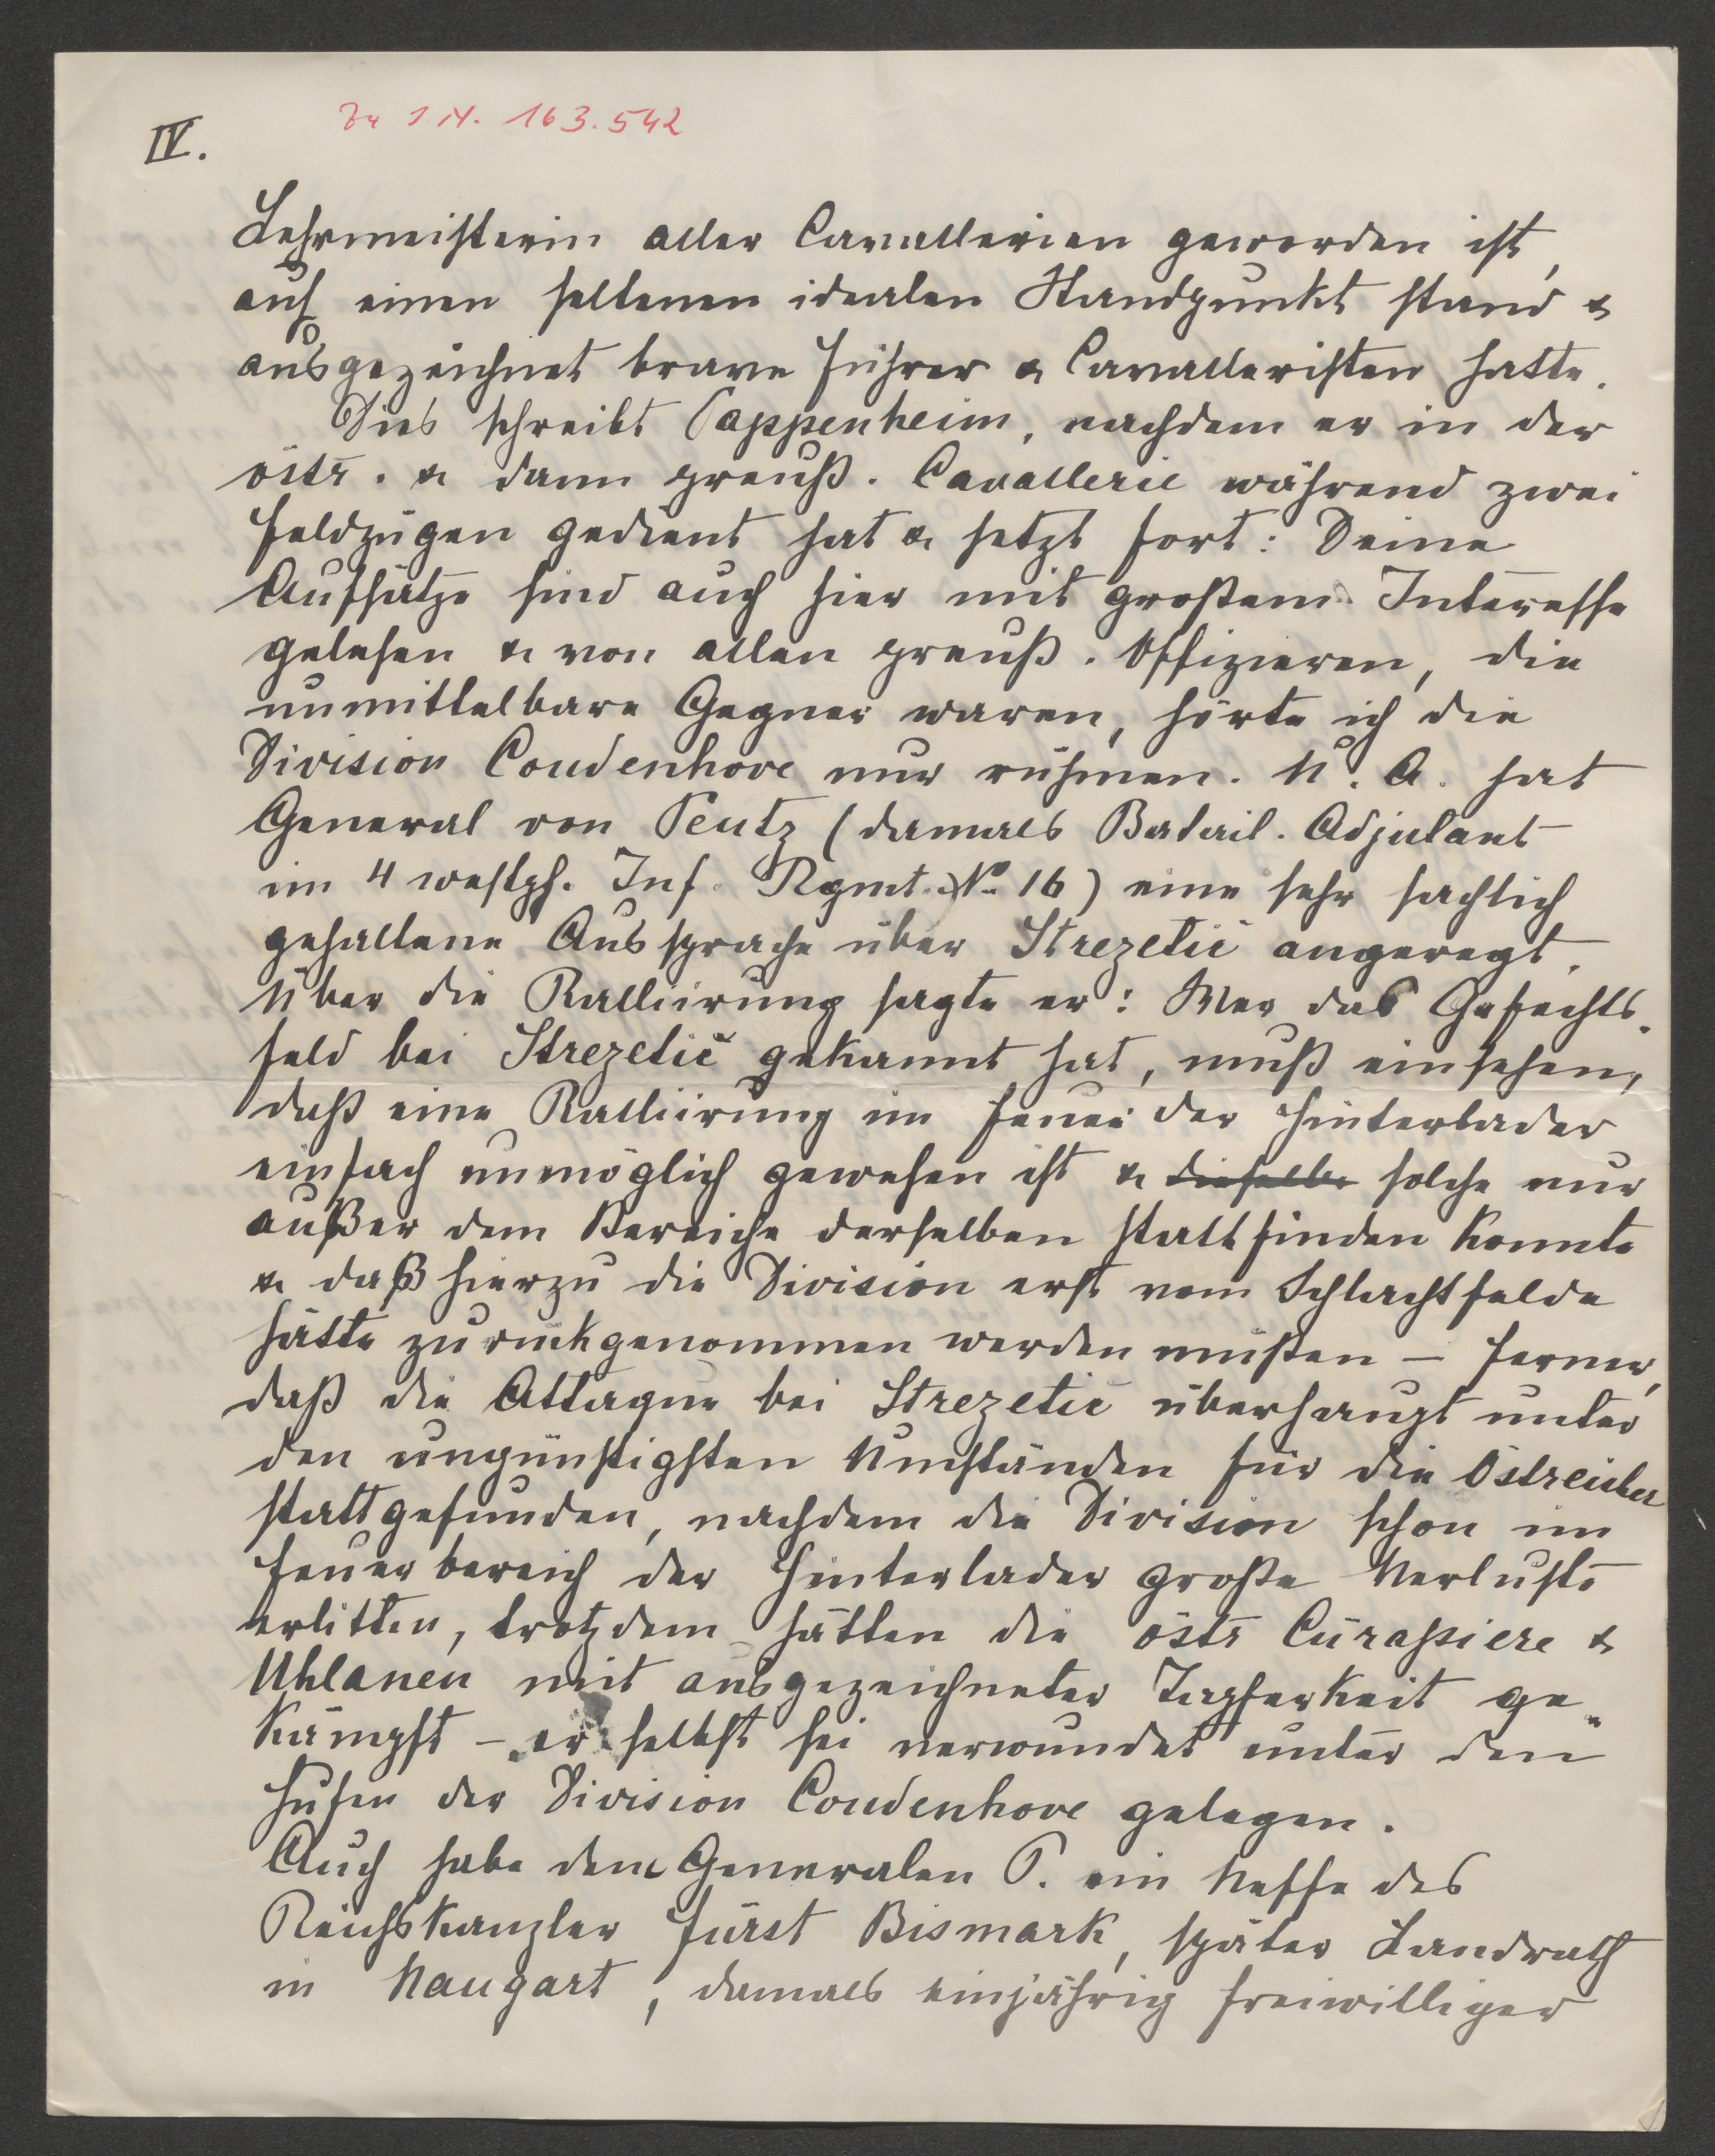 IV.
Zu I.N. 163.542
Lehrmeisterin aller Cavallerien geworden ist,
auf einen seltenen idealen Standpunkt stand &
ausgezeichnet brave Führer & Cavalleristen hatte.
Dies schreibt Pappenheim, nachdem er in der
östr. & dann preuß. Cavallerie während zwei
Feldzügen gedient hat & setzt fort: Deine
Aufsätze sind auch hier mit großem Interesse
gelesen & von allen preuß. Offizieren, die
unmittelbare Gegner waren, hörte ich die
Division Coudenhove nur rühmen. U. A. hat
General von Peutz (damals Batail. Adjutant
im 4 westph. Inf. Rgmt. No. 16) eine sehr sachlich
gehaltene Aussprache über Strezetič angeregt.
Über die Ralliirung sagte er: Wer das Gefechts-
feld bei Strezetič gekannt hat, muß einsehen,
daß eine Ralliirung im Feuer der Hinterlader
einfach unmöglich gewesen ist & dieselbe solche nur
außer dem Bereiche derselben stattfinden konnte
& daß hierzu die Division erst vom Schlachtfelde
hätte zurückgenommen werden müßen – ferner,
daß die Attaque bei Strezetič überhaupt unter
den ungünstigsten Umständen für die Östreicher
stattgefunden, nachdem die Division schon im
Feuerbereich der Hinterlader große Verluste
erlitten, trotzdem hätten die östr Cürassiere &
Uhlanen mit ausgezeichneter Tapferkeit ge-
kämpft – er selbst sei verwundet unter den
Hufen der Division Coudenhove gelegen.
Auch habe dem Generalen P. ein Neffe des
Reichskanzler Fürst Bismark, später Landrath
in Naugart, damals einjährig freiwilliger